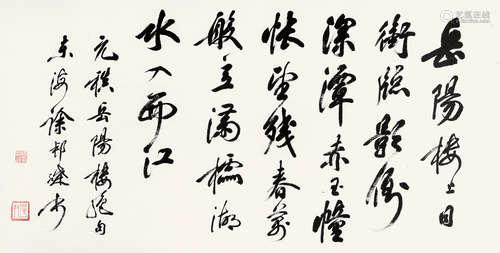 岳陽樓上日
銜牕影倒
深潭赤玉幢
悵望殘春萬
般意滿櫺湖
水入西江
元稹岳陽樓絕句
東海徐邦達書